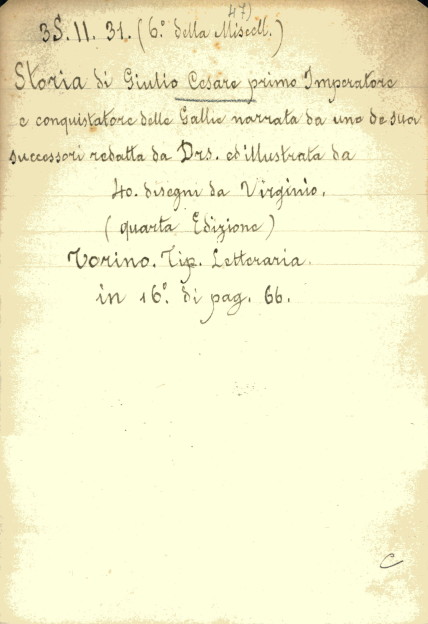 47)
3S. II. 31. (6.° della Miscell.)
Storia di Giulio Cesare primo Imperatore
e conquistatore delle Gallie narrata da uno de suoi
successori redatta da Drs. ed illustrata da
40. disegni da Virginio.
(quarta Edizione)
Torino. Tip. Letteraria.
in 16.° di pag. 66.
C